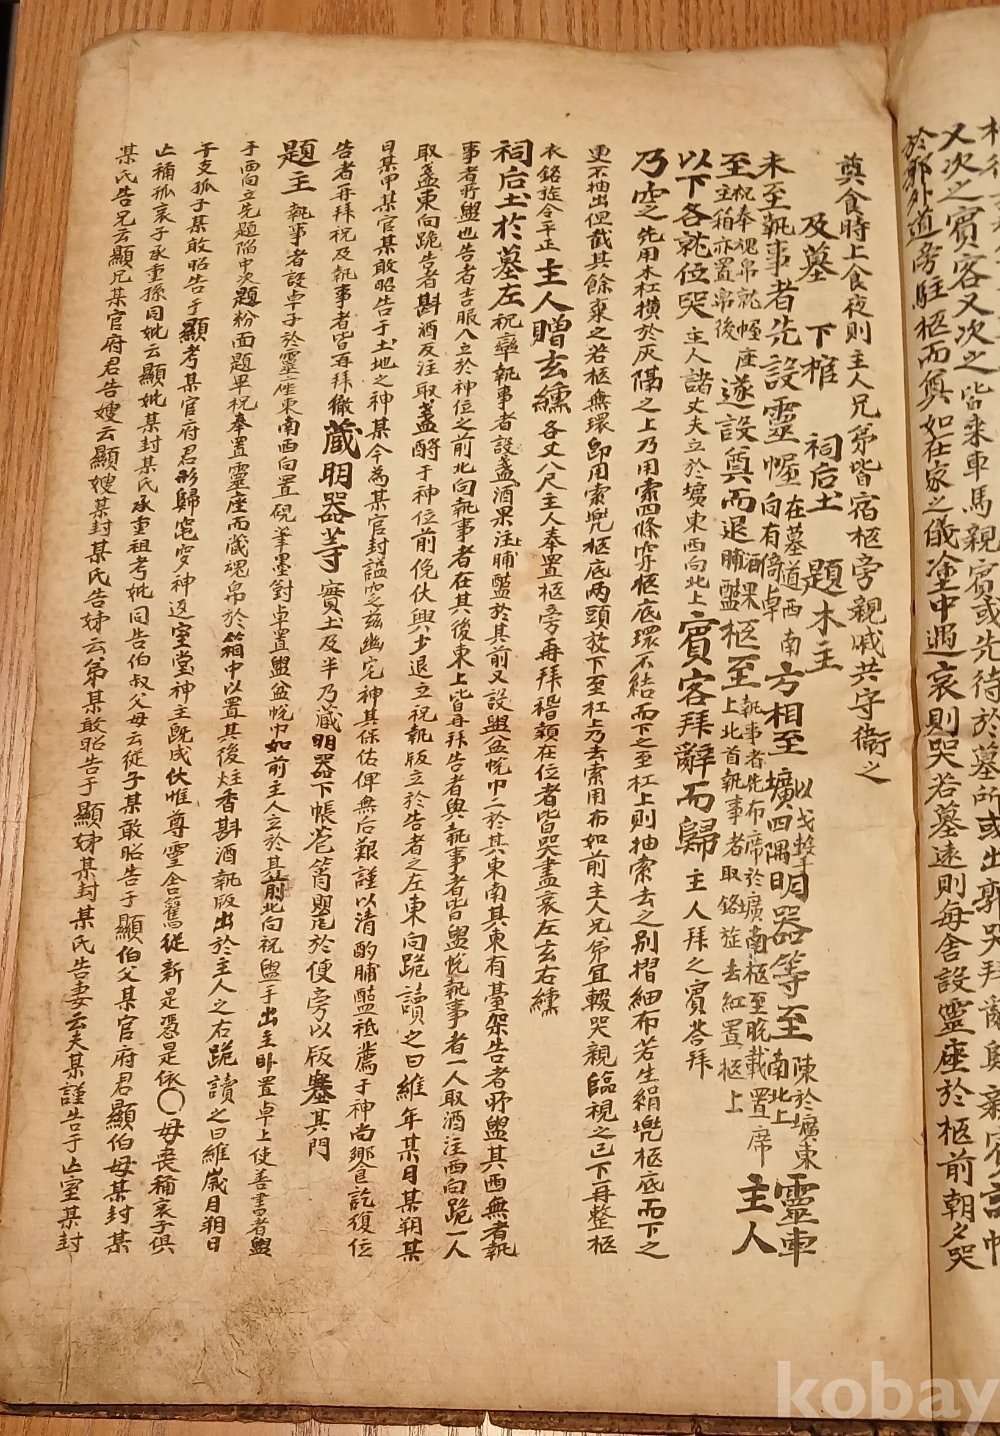 又次之賓客又次之皆乘車馬親賓或先待於墓所或出郭哭拜辭
於郭外道旁駐柩而奠如在家之儀塗中遇哀則哭若墓遠則每舍設靈座於柩前朝夕哭
奠食時上食夜則主人兄弟皆宿柩旁親戚共守衞之
及墓 下棺 祠后土 題木主
未至執事者先設靈幄在墓道西南向有倚卓方相至以戈擊壙四隅明器等至陳於壙東南北上靈車
至祝奉魂帛就幄座主箱亦置帛後遂設奠而退酒果脯醢柩至執事者先布席於壙南柩至脫載置席上北首執事者取銘旌去紅置柩上主人
以下各就位哭主人諸丈夫立於壙東西向北上賓客拜辭而歸主人拜之賓答拜
乃窆之先用木杠橫於灰隔之上乃用索四條穿柩底環不結而下之至杠上則抽索去之別摺細布若生絹兜柩底而下之
更不抽出但截其餘棄之若柩無環卽用索兜柩底兩頭放下至杠上乃去索用布如前主人兄弟宜輟哭親臨視之已下再整柩
衣銘旌令平正主人贈玄纁各丈八尺主人奉置柩旁再拜稽顙在位者皆哭盡哀左玄右纁
祠后土於墓左祝率執事者設盞酒果注脯醢於其前又設盥盆帨巾二於其東南其東有臺架告者所盥其西無者執
事者所盥也告者吉服入立於神位之前北向執事者在其後東上皆再拜告者與執事者皆盥帨執事者一人取酒注西向跪一人
取盞東向跪告者斟酒反注取盞酹于神位前俛伏興少退立祝執版立於告者之左東向跪讀之曰維年某月某朔某
日某甲某官某敢昭告于土地之神某今為某官封諡窆玆幽宅神其保佑俾無后艱謹以清酌脯醢祗薦于神尚饗訖復位
告者再拜祝及執事者皆再拜徹藏明器等實土及半乃藏明器下帳苞筲甖於便旁以版塞其門
題主執事者設卓子於靈座東南西向置硯筆墨對卓置盥盆帨巾如前主人立於其前北向祝盥手出主卧置卓上使善書者盥
手西向立先題陷中次題粉面題畢祝奉置靈座而藏魂帛於箱中以置其後炷香斟酒執版出於主人之右跪讀之曰維歲月朔日
干支孤子某敢昭告于顯考某官府君形歸窀穸神返室堂神主旣成伏惟尊靈舍舊從新是憑是依〇母喪稱哀子俱
亡稱孤哀子承重孫同妣云顯妣某封某氏承重祖考妣同告伯叔父母云從子某敢昭告于顯伯父某官府君顯伯母某封某
某氏告兄云顯兄某官府君告嫂云顯嫂某封某氏告姊云弟某敢昭告于顯姊某封某氏告妻云夫某謹告于亡室某封
kobay